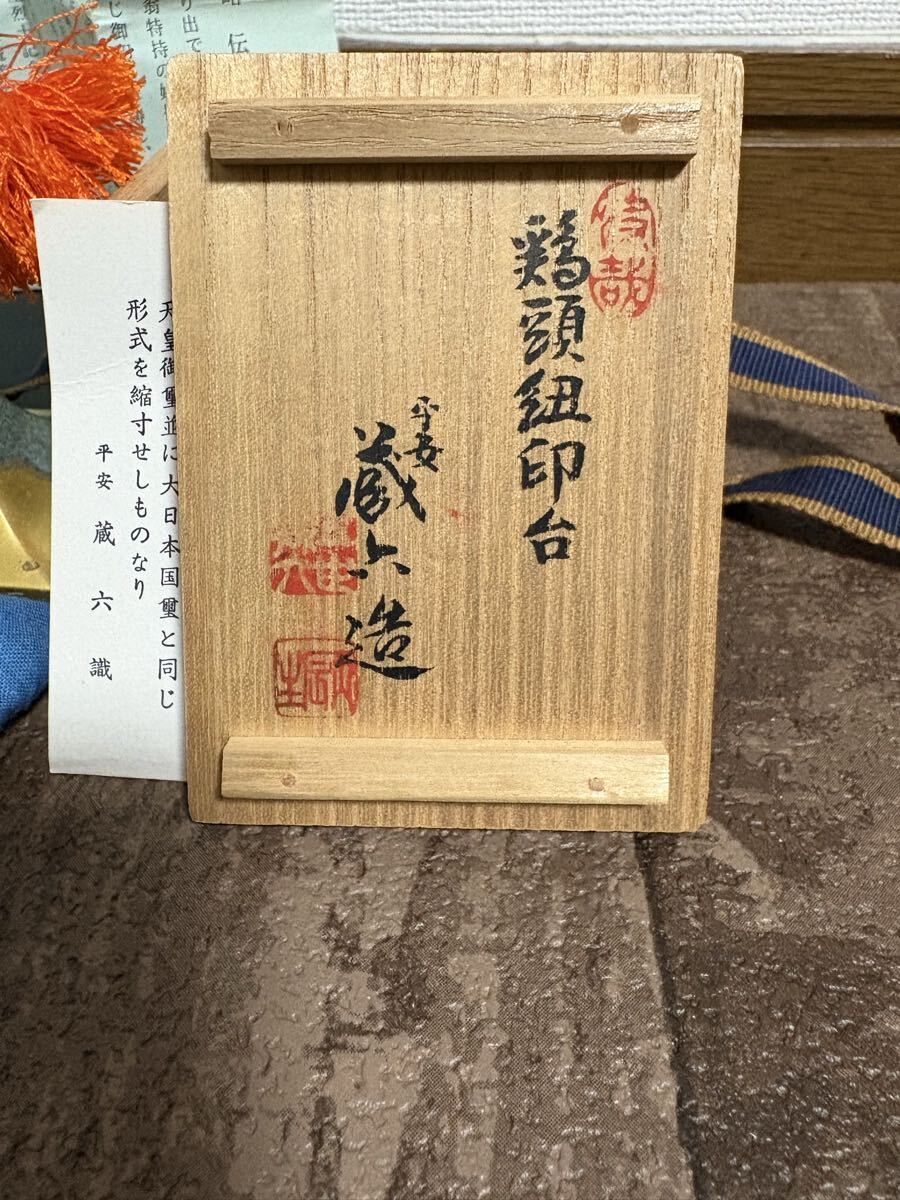 鶏頭紐印台
平安
蔵六造
天皇御璽並に大日本国璽と同じ
形式を縮寸せしものなり
平安 蔵六識
略伝
り出で
翁特持の
じ御